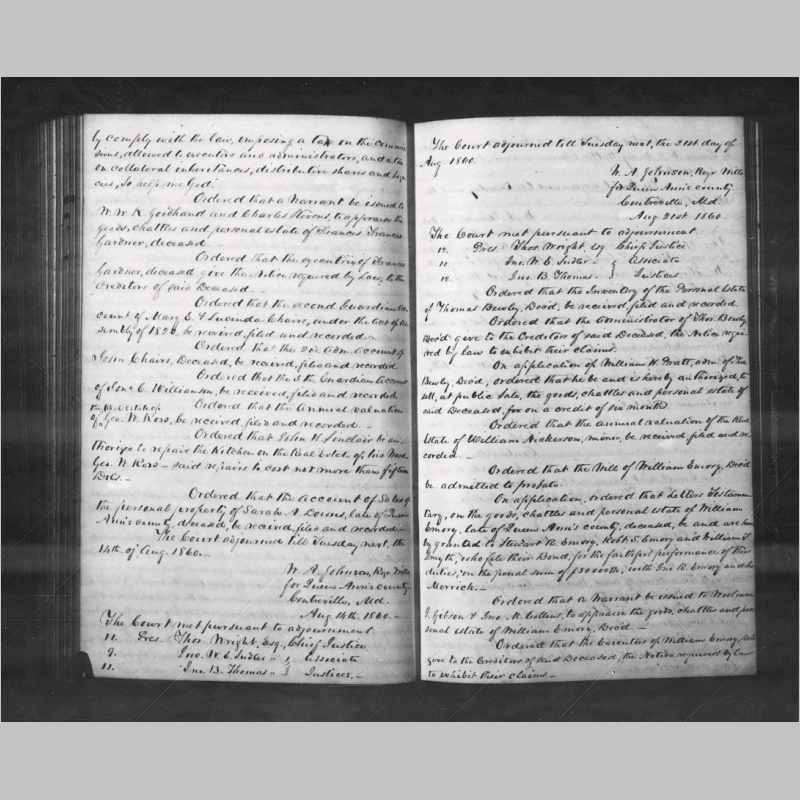 by comply with the law, imposing a tax on the commis
sions, allowed to executors and administrators, and a tax
on collateral inheritances, distributive shares and lega
cies, So help me God.
Ordered that a Warrant be issued to
W. W. R. Goodhand and Charles Stevens, to appraise the
goods, chattles and personal estate of Frances
Gardner, deceased.
Ordered that the of Frances
Gardner, deceased give the Notice required by Law, to the
Creditors of said Deceased. -
Ordered that the second Guardian Ac
count of Mary E. & Lucinda Chairs, under the act of As
sembly of 1820, be received, filed and recorded. -
Ordered, that the 2nd Adm. Account of
John Chairs, Deceased, be received, filed and recorded
Ordered that the 5 the Guardian Account
of E. Williamson, be received, filed and recorded.
Ordered that the Annual valuation
of Geo. W. Ross, be received, filed and recorded. -
Ordered that John H. Sinclair be au-
thorize to repair the Kitchen on the Real Estate of his Ward
Geo. W. Ross - said repairs to cost not more than fifteen
Dols. -
Ordered that the account of Sales of
the personal property of Sarah A. late of Queen
Ann's county, deceased, be received, filed and recorded. -
The Court adjourned till Tuesday next, the
14th. of Aug. 1860. -
W. A. Johnson, Regr. Wills
for Queen Ann's county
Centreville, Md.
Aug 14th. 1860. -
The Court met pursuant to adjournment
11. Pres. Thos. Wright, Esq., Chief Justice
9. Jno. W. E. Sudler " } Associate
11. Jno. B. Thomas " } Justices. -
The Court adjourned till Tuesday next, the 21st day of
Aug. 1860.
W. A. Johnson, Regr. Wills
for Queen Ann's county
Centreville, Md.
Aug 21st. 1860.
The Court met pursuant to adjournment
12. Pres. Thos. Wright, Esq Chief Justice
11. Jno. W. E. Sudler - } Associate
10. Jno. B. Thomas - } Justices
Ordered that the Inventory of the Personal Estate
of Thomas Bewly, Dec'd, be received, filed and recorded.
Ordered that the administrator of Thos. Bewly
Dec'd give to the Creditors of said Deceased, the Notice requi
red by law to exhibit their claims.
On application of William H. Pratt, adm. of Thos
Bewly, Dec'd, ordered that he be and is hereby authorized, to
sell, at public Sale, the goods, chattles and personal estate of
said Deceased, for on a credit of six months.
Ordered that the annual valuation of the Real
Estate of William minor, be received filed and re
corded. -
Ordered that the Will of William Emory, Dec'd
be admitted to probate. -
On application, ordered that Letters Testamen
tary, on the goods, chattles and personal estate of William
Emory, late of Queen Ann's county, deceased, be and are here
by granted to Stewart R. Emory, Robt. S. Emory and William T.
Smyth, who file their Bond, for the faithful performance of their
duties, in the penal sum of with Jno. R. Emory and
Merrick. -
Ordered that a Warrant be issued to Woolman
J. Gibson & Jno. M. Collins, to appraise the goods, chattles and per
sonal estate of William Emory, Dec'd. -
Ordered that the Executors of William Emory, Dec'd
give to the Creditors of said Deceased, the Notice required by law
to exhibit their claims. -